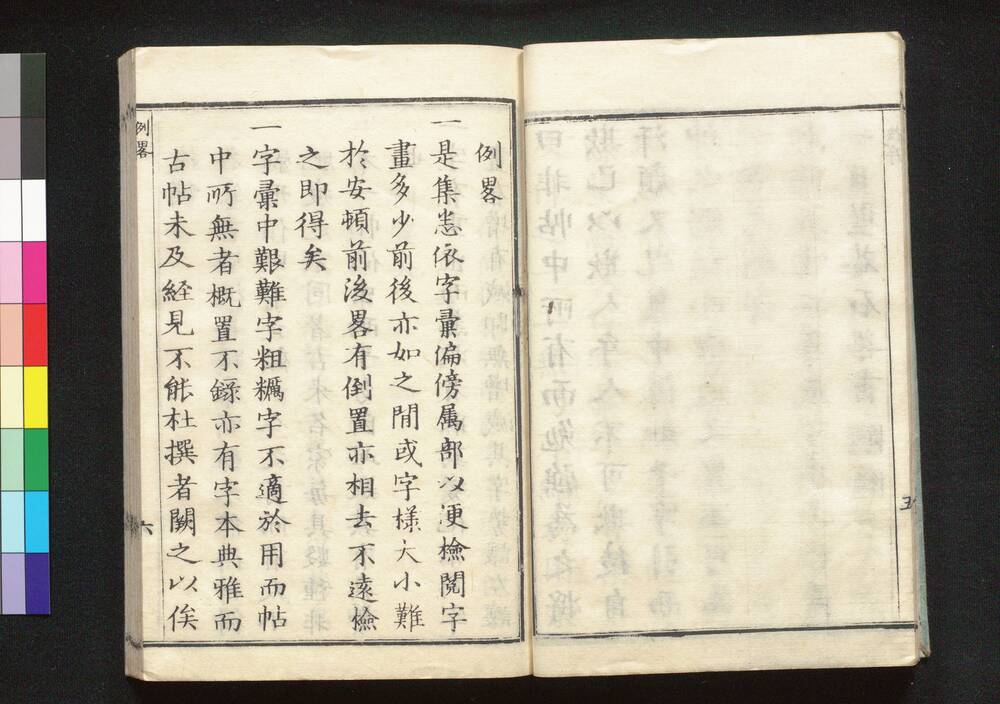 五
例畧
一是集悉依字彙偏傍属部以便檢閲字
畫多少前後亦如之間或字樣大小難
於安頓前後畧有倒置亦相去不遠檢
之即得矣
一字彙中艱難字粗糲字不適於用而帖
中所無者概置不錄亦有字本典雅而
古帖未及經見不能杜撰者闕之以俟
例畧
六